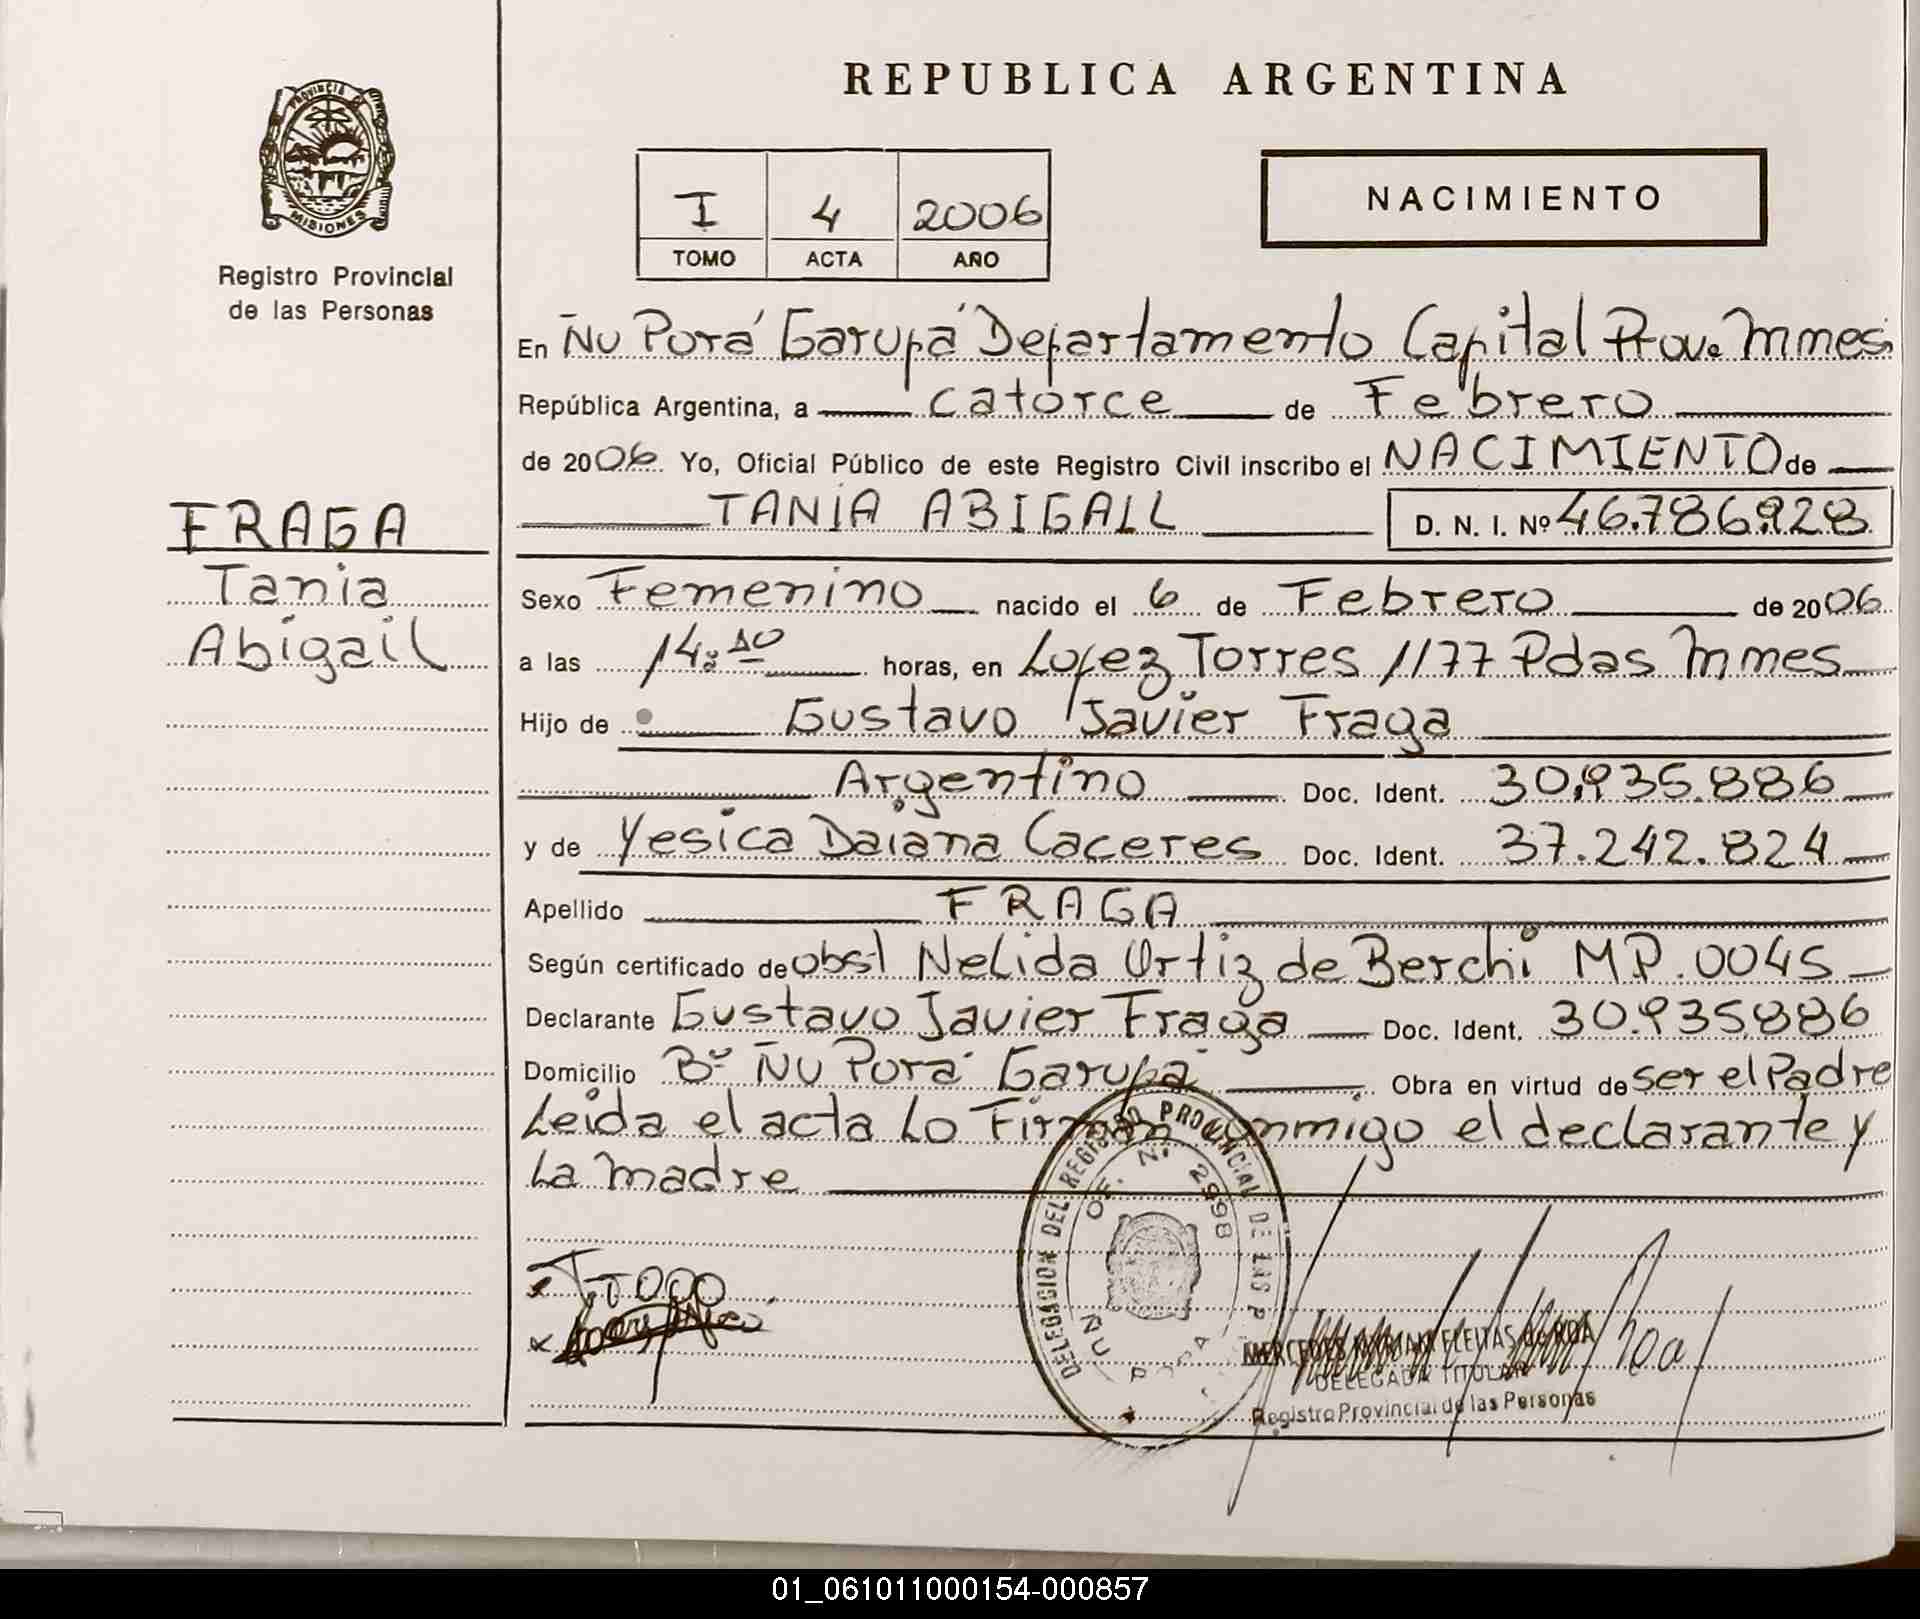 REPUBLICA ARGENTINA
PROVINCIA DE
MISIONES
Registro Provincial
de las Personas
I 4 2006
TOMO ACTA AÑO
NACIMIENTO
En Ñu Porá Garupá Departamento Capital Prov. Mnes
República Argentina, a catorce de Febrero
de 2006 Yo, Oficial Público de este Registro Civil inscribo el NACIMIENTO de
TANIA ABIGAIL D. N. I. Nº 46.786.928
FRAGA
Tania
Abigail
Sexo Femenino nacido el 6 de Febrero de 2006
a las 14:10 horas, en Lopez Torres 1177 Pdas Mnes
Hijo de Gustavo Javier Fraga
Argentino Doc. Ident. 30.935.886
y de Yesica Daiana Caceres Doc. Ident. 37.242.824
Apellido FRAGA
Según certificado de obst Nelida Ortiz de Berchi MP. 0045
Declarante Gustavo Javier Fraga Doc. Ident. 30.935.886
Domicilio Bº Ñu Porá Garupá Obra en virtud de ser el Padre
Leida el acta Lo Firman conmigo el declarante y
La madre
DELEGACION DEL REGISTRO PROVINCIAL DE LAS P
OF. Nº 2998
ÑU PORA
MERCEDES MIRIAM FLEITAS de ROA
DELEGADA TITULAR
Registro Provincial de las Personas
01_061011000154-000857